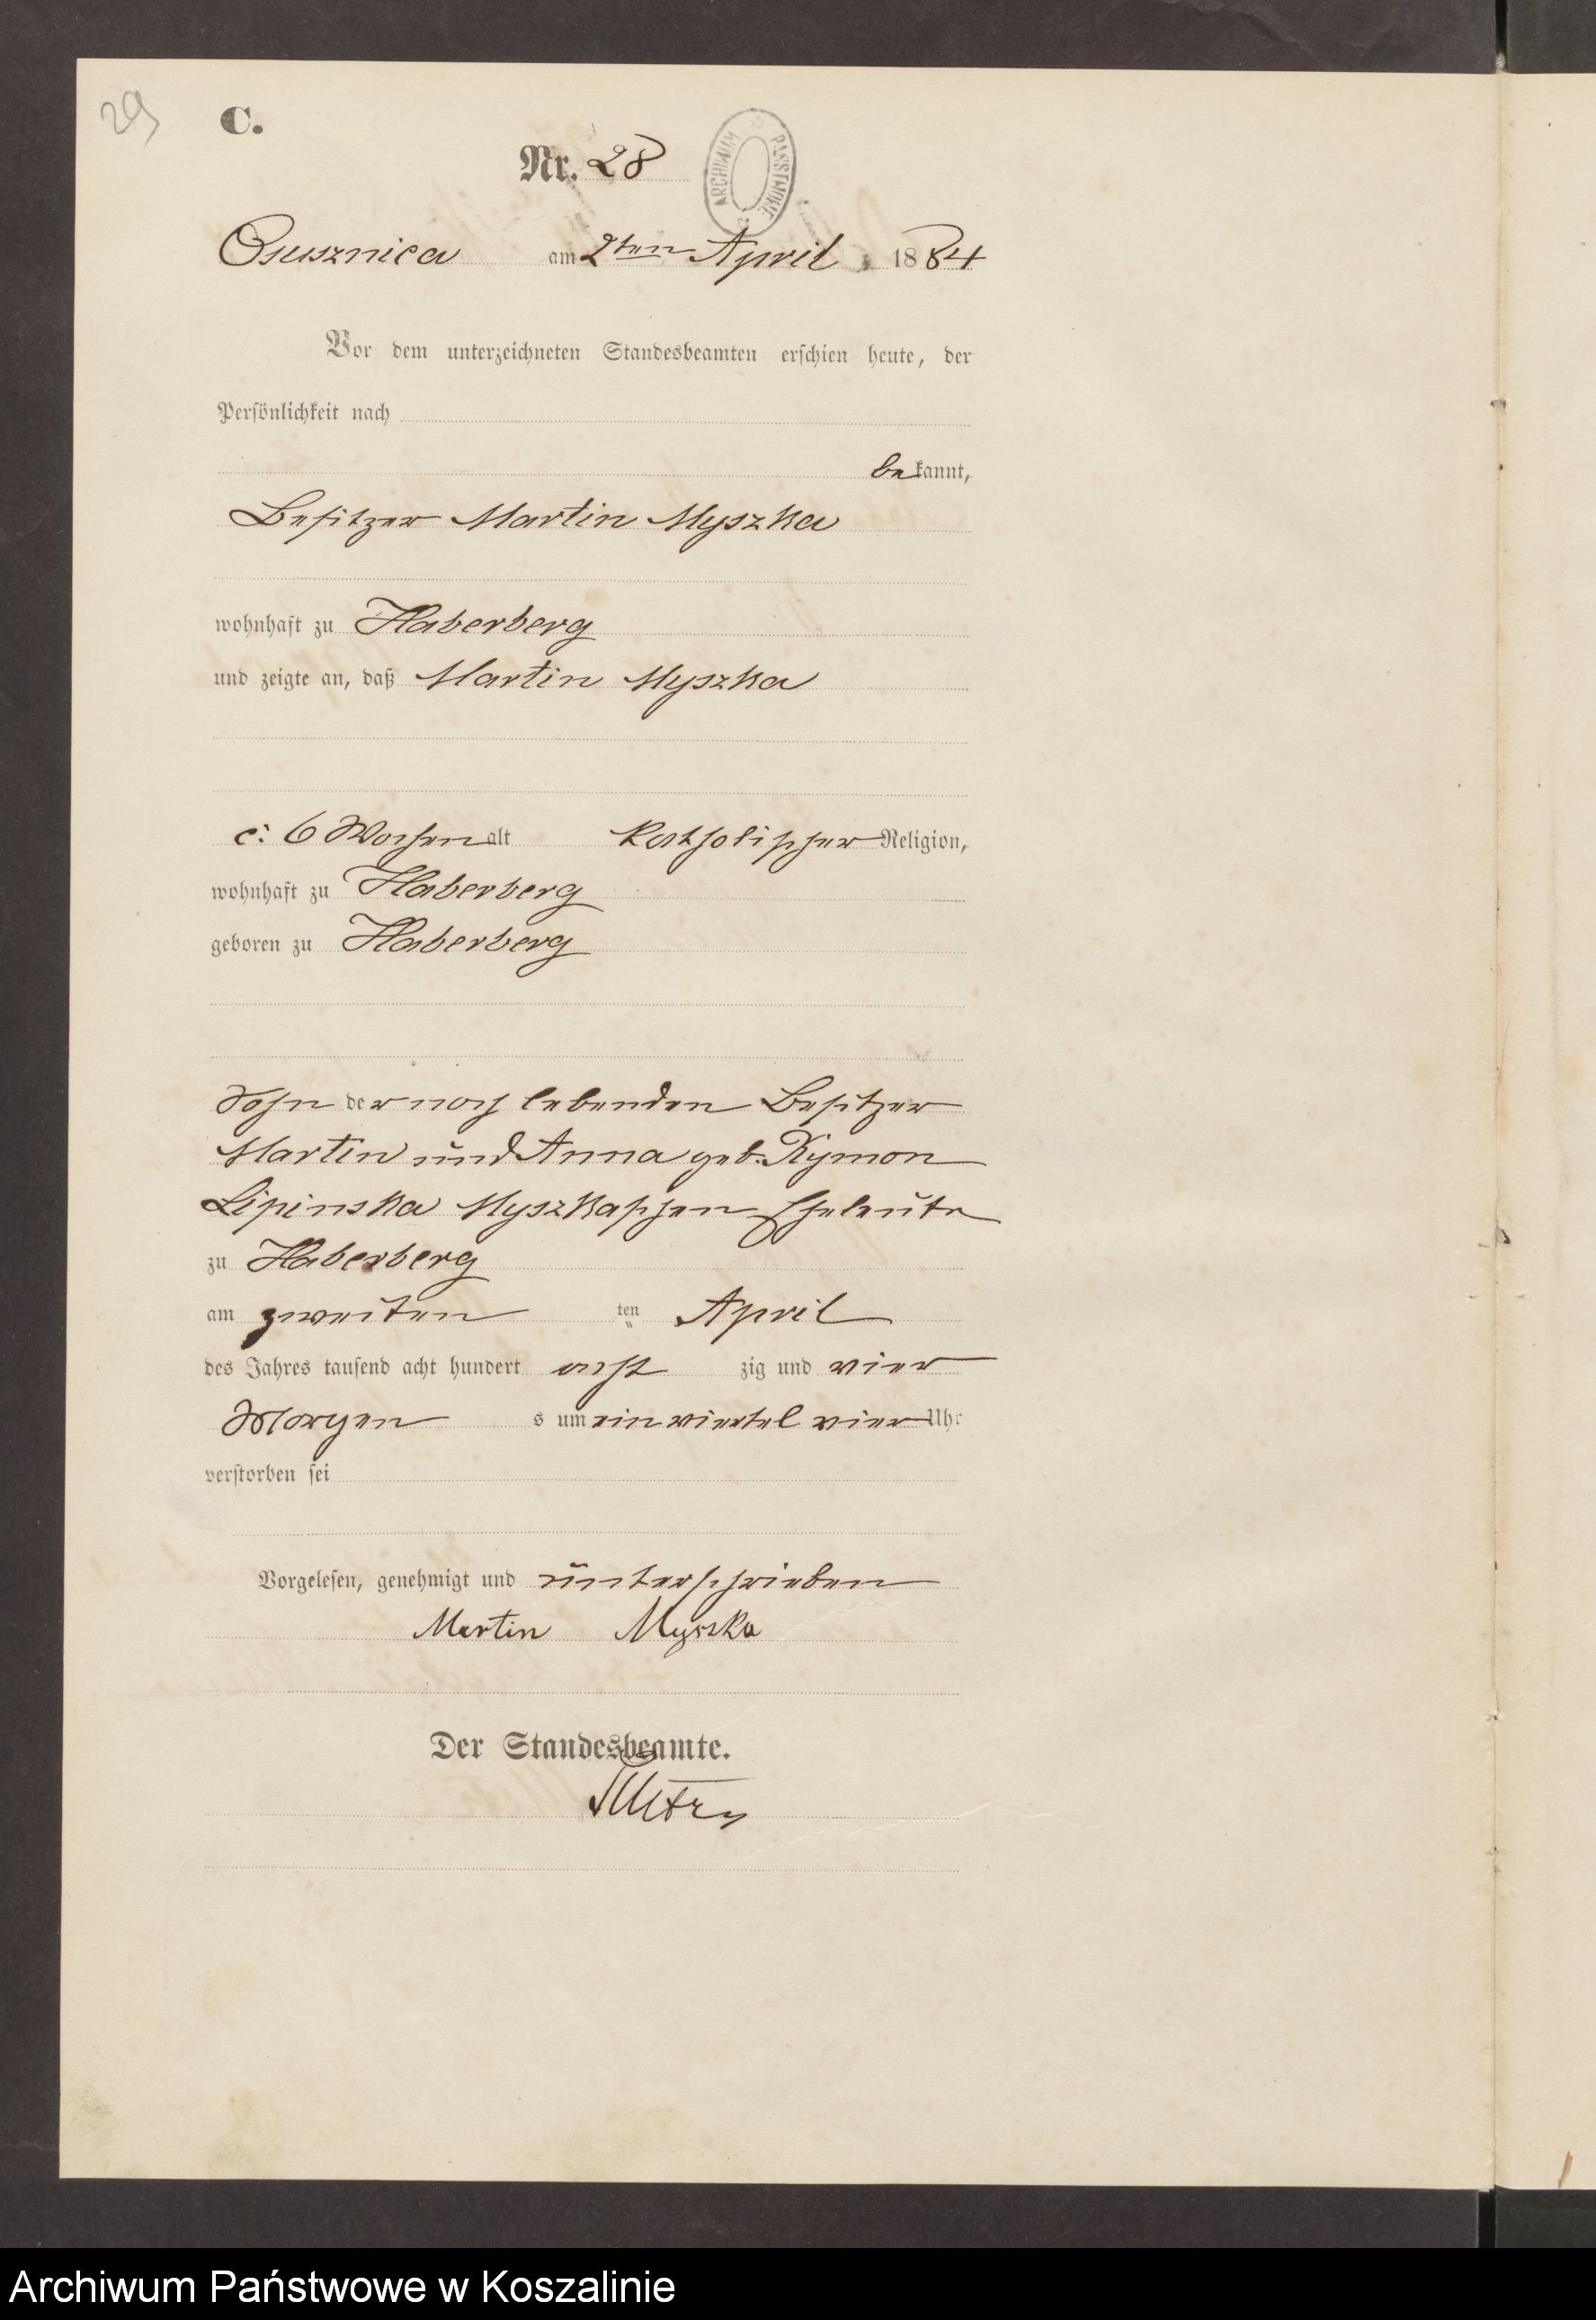 29
C.
Nr. 28
ARCHIWUM PAŃSTWOWE
Osusznica am 2ten April 1884
Vor dem unterzeichneten Standesbeamten erschien heute, der
Persönlichkeit nach
bekannt,
Besitzer Martin Myszka
wohnhaft zu Haberberg
und zeigte an, daß Martin Myszka
c: 6 Wochen alt katholischer Religion,
wohnhaft zu Haberberg
geboren zu Haberberg
Sohn der noch lebenden Besitzer
Martin und Anna geb. Kymon
Lipinska Myszkaschen Eheleute
zu Haberberg
am zweiten ten April
des Jahres tausend acht hundert acht zig und vier
Morgen s um ein viertel vier Uhr
verstorben sei
Vorgelesen, genehmigt und unterschrieben
Martin Myszka
Der Standesbeamte.
Archiwum Państwowe w Koszalinie